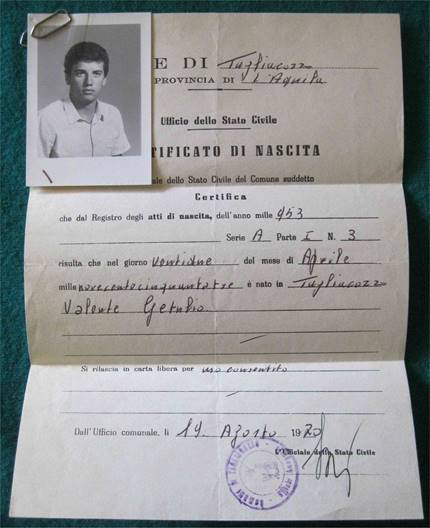 E DI Tagliacozzo
PROVINCIA DI L'Aquila
Ufficio dello Stato Civile
TIFICATO DI NASCITA
ale dello Stato Civile del Comune suddetto
Certifica
che dal Registro degli atti di nascita, dell'anno mille 953
Serie A Parte I N. 3
risulta che nel giorno ventidue del mese di Aprile
mille novecentocinquantatre è nato in Tagliacozzo
Valente Getulio
Si rilascia in carta libera per uso consentito
Dall'Ufficio comunale, lì 19 Agosto 1970
L'Ufficiale dello Stato Civile